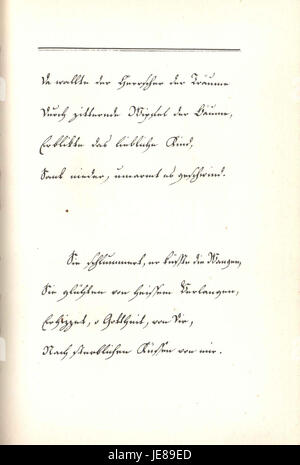 Da wallte der Herrscher der Träume
Durch zitternde Wipfel der Bäume,
Erblikte das liebliche Kind,
Sank nieder, umarmt es geschwind.
Sie schlummert, er küsste die Wangen,
Sie glühten von heissem Verlangen,
Erhizzet, o Gottheit, von dir,
Nach sterblichen Küssen von mir.
alamy
alamy
Image ID: JE89ED
www.alamy.com